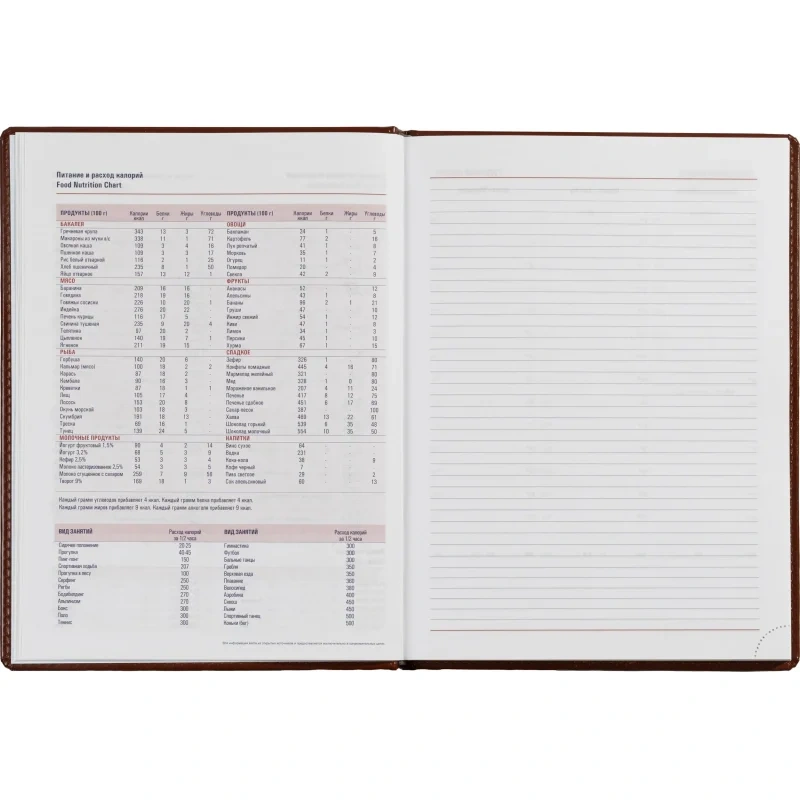 Питание и расход калорий
Food Nutrition Chart
ПРОДУКТЫ (100 г) Калории ккал Белки г Жиры г Углеводы г
БАКАЛЕЯ
Гречневая крупа 343 13 3 72
Макароны из муки в/с 338 11 1 71
Овсяная каша 109 3 4 16
Пшенная каша 109 3 3 17
Рис белый отварной 116 2 1 25
Хлеб пшеничный 235 8 1 50
Яйцо отварное 157 13 12 1
МЯСО
Баранина 209 16 16 -
Говядина 218 19 16 -
Говяжьи сосиски 226 10 20 1
Индейка 276 20 22 -
Печень курицы 116 17 5 -
Свинина тушеная 235 9 20 4
Телятина 97 20 2 -
Цыпленок 140 19 7 1
Ягненок 211 18 10 -
РЫБА
Горбуша 140 20 6 -
Кальмар (мясо) 100 18 2 2
Карась 87 18 2 -
Камбала 90 16 3 -
Креветки 87 18 1 1
Лещ 105 17 4 -
Лосось 153 20 8 -
Окунь морской 103 18 3 -
Скумбрия 191 18 13 -
Треска 69 16 1 -
Тунец 139 24 5 -
МОЛОЧНЫЕ ПРОДУКТЫ
Йогурт фруктовый 1,5% 90 4 2 14
Йогурт 3,2% 68 5 3 9
Кефир 2,5% 53 3 3 4
Молоко пастеризованное 2,5% 54 3 3 5
Молоко сгущенное с сахаром 259 7 9 56
Творог 9% 169 18 1 3
ПРОДУКТЫ (100 г) Калории ккал Белки г Жиры г Углеводы г
ОВОЩИ
Баклажан 24 1 - 5
Картофель 77 2 - 16
Лук репчатый 41 1 - 8
Морковь 35 1 - 7
Огурец 11 1 - 2
Помидор 20 - - 4
Свекла 42 2 - 9
ФРУКТЫ
Ананасы 52 - - 12
Апельсины 43 1 - 8
Бананы 96 2 1 21
Груши 47 - - 10
Инжир свежий 54 1 - 12
Киви 47 1 - 8
Лимон 34 1 - 3
Персики 45 1 - 10
Хурма 67 1 - 15
СЛАДКОЕ
Зефир 326 1 - 80
Конфеты помадные 445 4 16 71
Мармелад желейный 321 - - 80
Мед 328 1 0 80
Мороженое ванильное 207 4 11 24
Печенье 417 8 12 75
Печенье сдобное 451 6 17 69
Сахар-песок 387 - - 100
Халва 469 13 22 61
Шоколад горький 539 6 35 48
Шоколад молочный 554 10 35 50
НАПИТКИ
Вино сухое 64 - - -
Водка 231
Кока-кола 36 - - 9
Кофе черный 7
Пиво светлое 29 - - 2
Сок апельсиновый 60 - - 13
Каждый грамм углеводов прибавляет 4 ккал. Каждый грамм белка прибавляет 4 ккал.
Каждый грамм жиров прибавляет 9 ккал. Каждый грамм алкоголя прибавляет 9 ккал.
ВИД ЗАНЯТИЙ Расход калорий за 1/2 часа
Сидячее положение 20-25
Прогулка 40-45
Пинг-понг 150
Спортивная ходьба 207
Серфинг 250
Регби 250
Бодибилдинг 270
Альпинизм 270
Бокс 300
Поло 300
Теннис 300
ВИД ЗАНЯТИЙ Расход калорий за 1/2 часа
Гимнастика 300
Футбол 300
Бальные танцы 300
Гребля 350
Верховая езда 350
Плавание 360
Велосипед 380
Аэробика 400
Сквош 450
Лыжи 450
Спортивный танец 500
Коньки (бег) 500